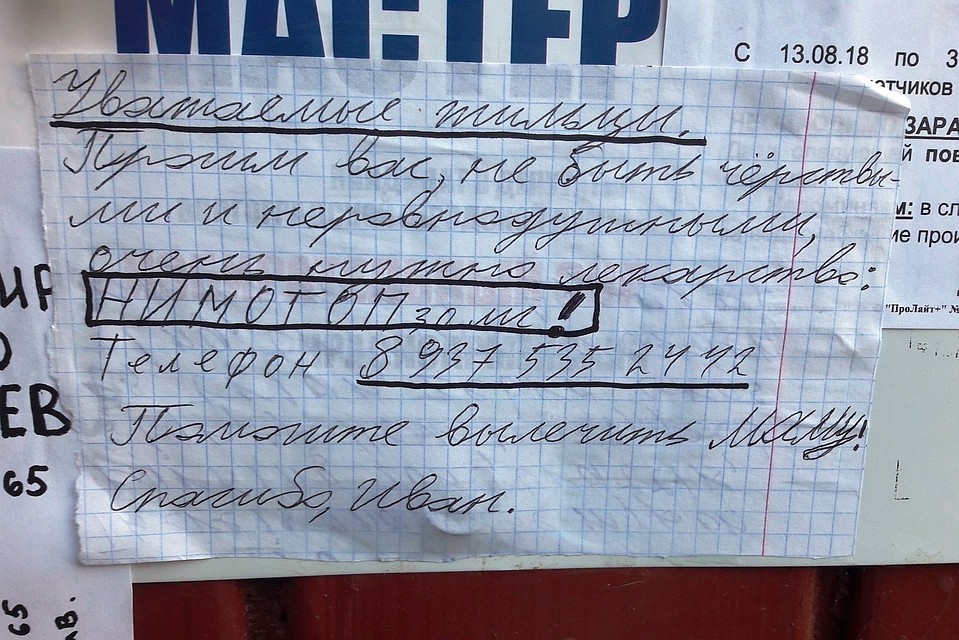 МАСТЕР
С 13.08.18 по 3
Уважаемые жильцы.
Просим вас, не быть чёрствы-
ми и неравнодушными,
очень нужно лекарство:
НИМОТОП 30 мг!
Телефон 8 937 535 24 42
Помогите вылечить Маму!
Спасибо, Иван.
отчиков
ЗАРА
й пов
м: в сл
ие прои
"ПроЛайт+" №
ЕВ
65
65